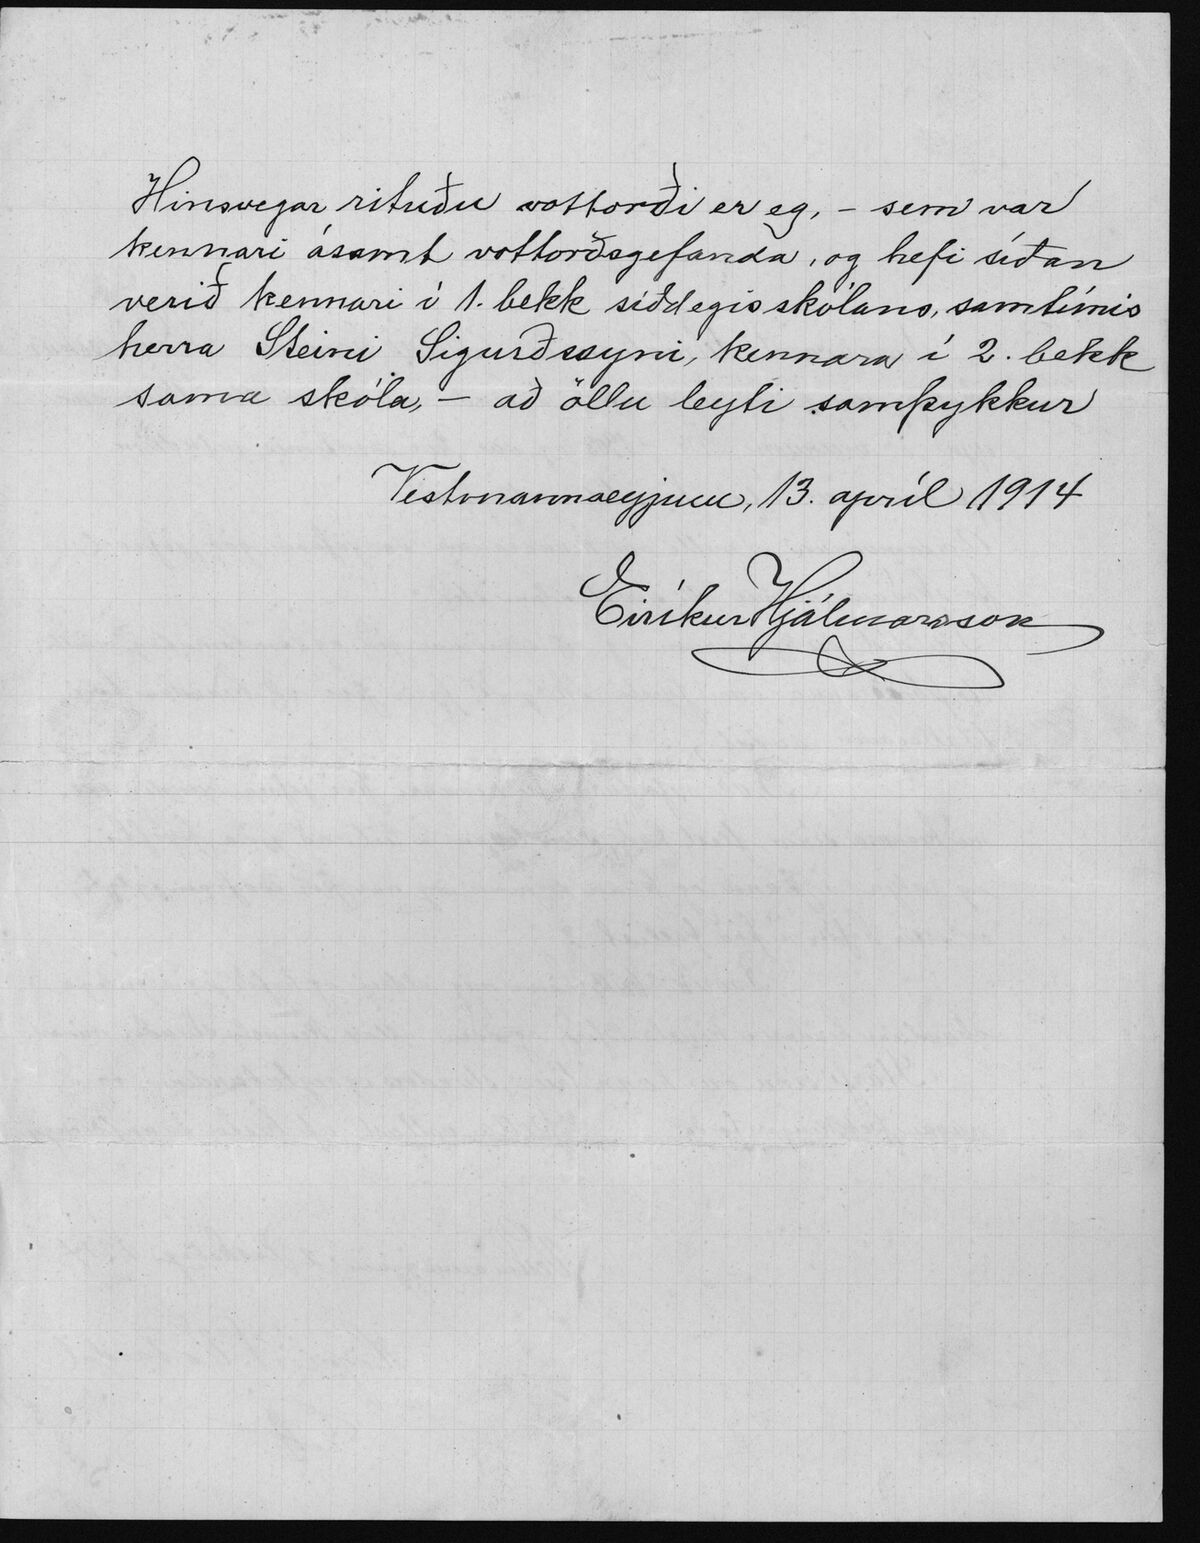 Hinsvegar rituðu vottorði er eg, - sem var
kennari ásamt vottorðsgefanda, og hefi síðan
verið kennari í 1. bekk síðdegisskólans, samtímis
herra Steini Sigurðssyni, kennara í 2. bekk
sama skóla, - að öllu leyti samþykkur
Vestmannaeyjum, 13. apríl 1914
Eiríkur Hjálmarsson